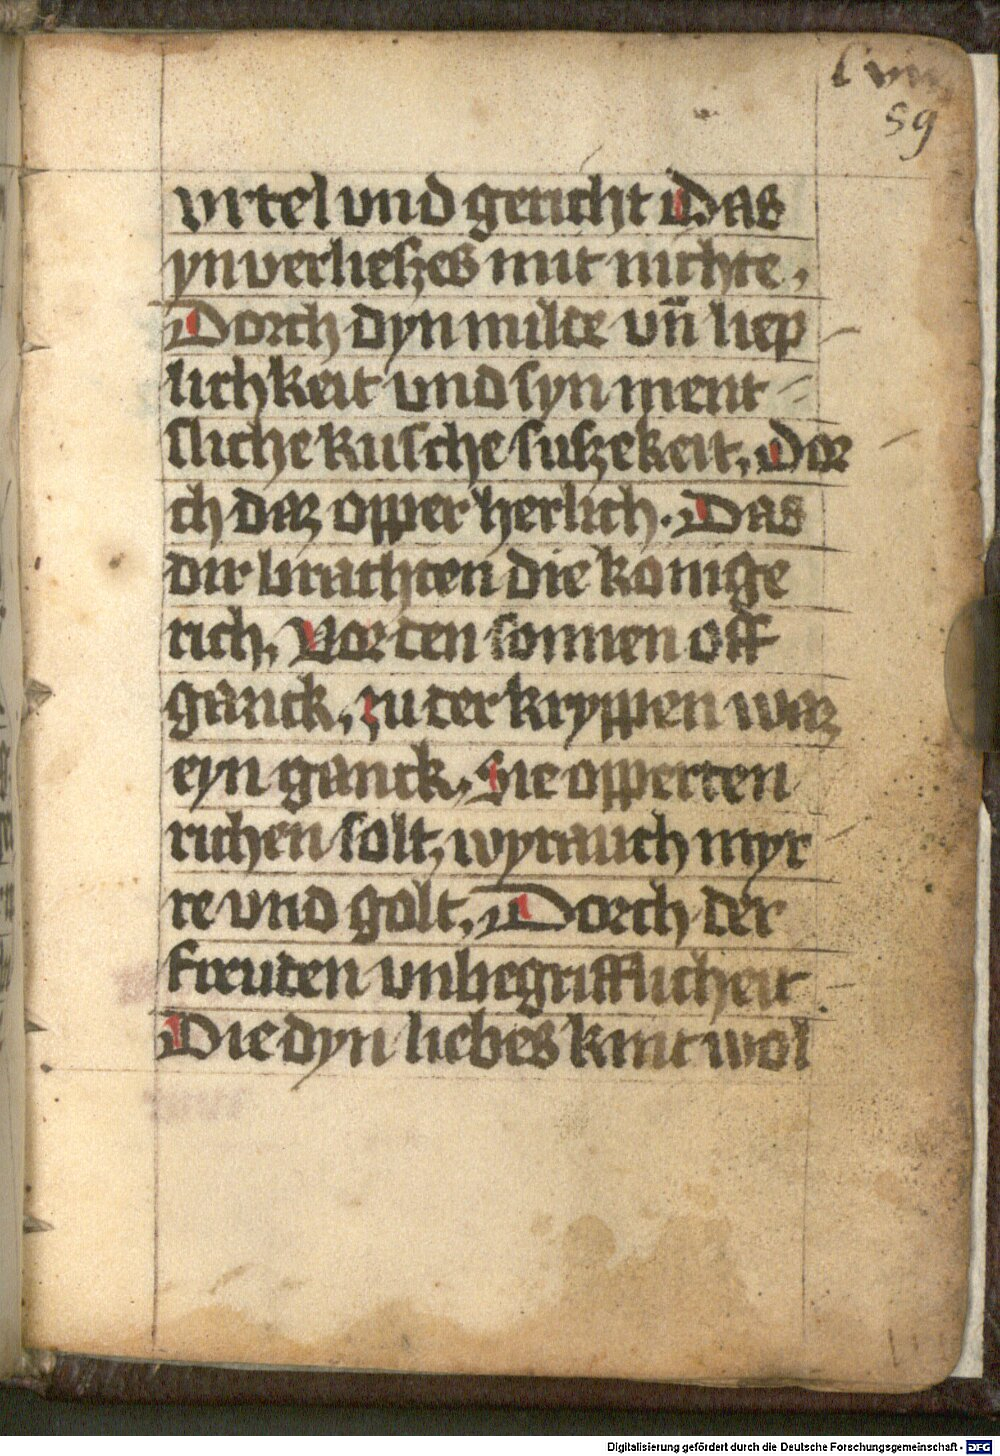 59
vrtel vnd gericht Das
yn verlieszes mit nichte,
Dorch dyn milde vn̄ liep
lichkeit vnd syn ment
sliche kusche suszekeit, Dor
ch daz opper herlich. Das
dir brachten die konige
rich, Vor den sonnen off
ganck, zu der kryppen waz
eyn ganck, Sie opperten
richen solt, wyrauch myr
re vnd golt, Dorch der
freuden vnbegrifflicheit
Die dyn liebes kint wol
Digitalisierung gefördert durch die Deutsche Forschungsgemeinschaft - DFG